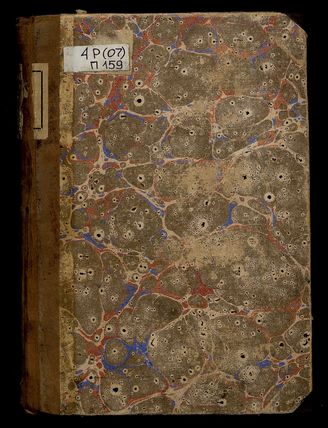 4 Р(07)
П 159